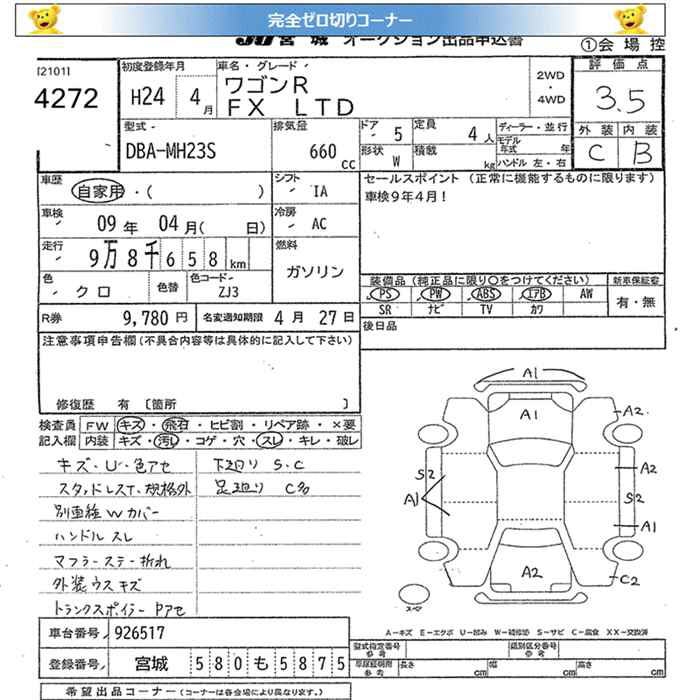 完全ゼロ切りコーナー
JU 宮城 オークション出品申込書
①会場控
[2101]
4272
初度登録年月
H24 4月
車名・グレード
ワゴンR
FX LTD
2WD
・
4WD
評価点
3.5
外装 内装
C B
型式
DBA-MH23S
排気量
660 cc
ドア 5
定員 4人
形状 W
積載 kg
ディーラー・並行
モデル年式 年
ハンドル 左・右
車歴
自家用・( )
シフト
IA
セールスポイント (正常に機能するものに限ります)
車検9年4月!
車検
09年 04月( 日)
冷房
AC
走行
9万8千658km
燃料
ガソリン
色
クロ
色替
色コード
ZJ3
装備品(純正品に限り○をつけてください)
PS PW ABS エアB AW
SR ナビ TV カワ
新車保証書
有・無
R券 9,780円
名変通知期限 4月 27日
後日品
注意事項申告欄(不具合内容等は具体的に記入して下さい)
修復歴 有 〔箇所 〕
検査員記入欄
FW キズ・飛石・ヒビ割・リペア跡・×要
内装 キズ・汚レ・コゲ・穴・スレ・キレ・破レ
キズ・U・色アセ 下廻り S.C
スタッドレスT.規格外 足廻り C多
別車種Wカバー
ハンドルスレ
マフラーステー折れ
外装ウスキズ
トランクスポイラーPアセ
A1
A1
A2
S2
A2
A1
S2
A1
A2
C2
スペア
A-キズ E-エクボ U-凹み W-補修跡 S-サビ C-腐食 XX-交換済
車台番号 926517
型式指定番号 参考
類別区分番号 参考
登録番号 宮城 580 も 5875
車庫証明用 参考
長さ cm
幅 cm
高さ cm
希望出品コーナー (コーナーは各会場により異なります。)